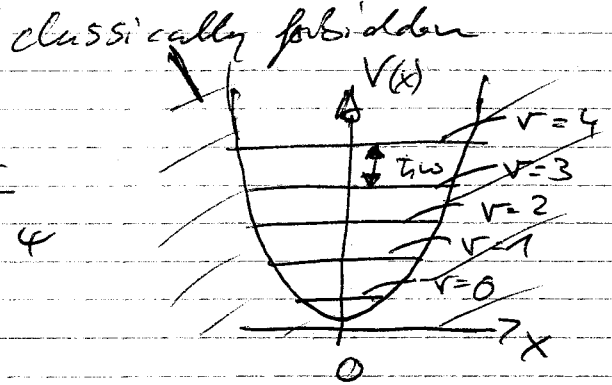 classically forbidden
V(x)
v=4
ħω
v=3
ψ
v=2
v=1
v=0
x
0